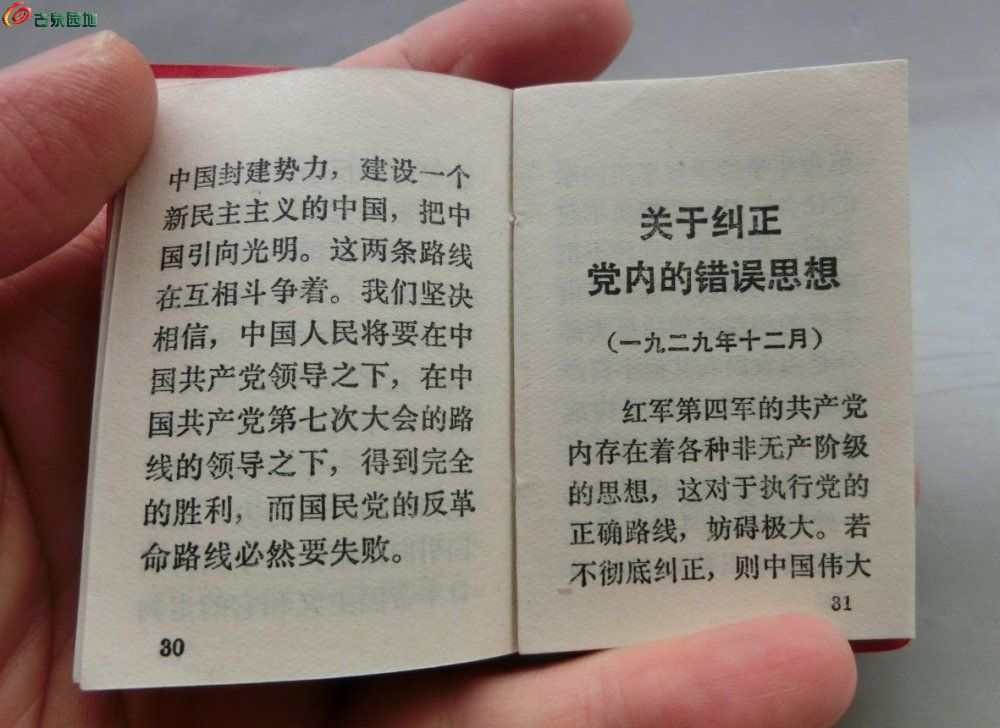 古泉园地
中国封建势力，建设一个
新民主主义的中国，把中
国引向光明。这两条路线
在互相斗争着。我们坚决
相信，中国人民将要在中
国共产党领导之下，在中
国共产党第七次大会的路
线的领导之下，得到完全
的胜利，而国民党的反革
命路线必然要失败。
30
关于纠正
党内的错误思想
（一九二九年十二月）
红军第四军的共产党
内存在着各种非无产阶级
的思想，这对于执行党的
正确路线，妨碍极大。若
不彻底纠正，则中国伟大
31